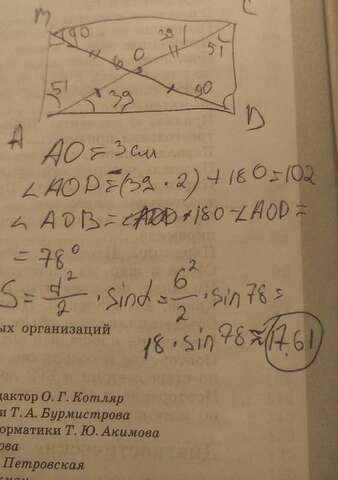 M C
90 39 51
O
6
51 39 90
A D
AO = 3 см
∠AOD = (39 · 2) + 180 = 102
∠AOB = 180 - ∠AOD =
= 78°
S = d²/2 · sin α = 6²/2 · sin 78 =
18 · sin 78 ≈ 17.61
ых организаций
дактор О. Г. Котляр
и Т. А. Бурмистрова
орматики Т. Ю. Акимова
ова
Петровская